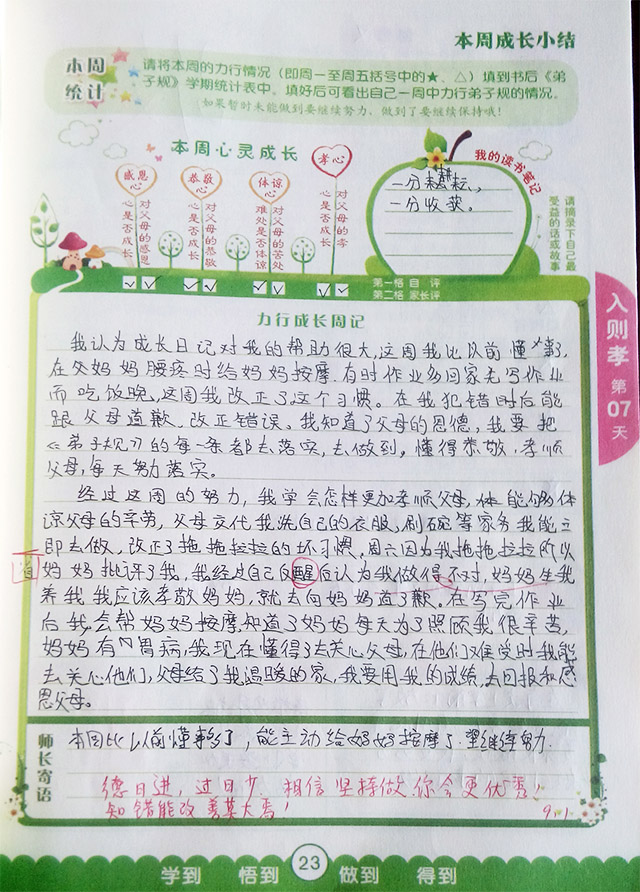 本周成长小结
本周
统计
请将本周的力行情况（即周一至周五括号中的★、△）填到书后《弟
子规》学期统计表中。填好后可看出自己一周中力行弟子规的情况。
如果暂时未能做到要继续努力，做到了要继续保持哦！
本周心灵成长
感恩心
恭敬心
体谅心
孝心
对父母的感恩心是否成长
对父母的恭敬心是否成长
对父母的苦处难处是否体谅
对父母的孝心是否成长
第一格 自 评
第二格 家长评
我的读书笔记
一分耕耘，
一分收获。
请摘录下自己最
受益的话或故事
入则孝 第07天
力行成长周记
我认为成长日记对我的帮助很大，这周我比以前懂事多，
在父妈妈腰疼时给妈妈按摩。有时作业多回家先写作业
而吃饭晚，这周我改正了这个习惯。在我犯错时后能
跟父母道歉，改正错误。我知道了父母的恩德，我要把
《弟子规》的每一条都去落实，去做到，懂得恭敬，孝顺
父母，每天努力落实。
经过这周的努力，我学会怎样更加孝顺父母，能够体
谅父母的辛劳，父母交代我洗自己的衣服，刷碗等家务我能立
即去做，改正了拖拖拉拉的坏习惯，周六因为我拖拖拉拉所以
妈妈批评了我，我经过自己自醒后认为我做得不对，妈妈生我
省
养我我应该孝敬妈妈，就去向妈妈道了歉。在写完作业
后我会帮妈妈按摩，知道了妈妈每天为了照顾我很辛苦，
妈妈有胃病，我现在懂得了去关心父母，在他们难受时我能
去关心他们，父母给了我温暖的家，我要用我的成绩去回报和感
恩父母。
师长寄语
本周比以前懂事多了，能主动给妈妈按摩了。望继续努力
德日进，过日少。相信坚持做你会更优秀！
知错能改善莫大焉！
9.1
学到 悟到 23 做到 得到